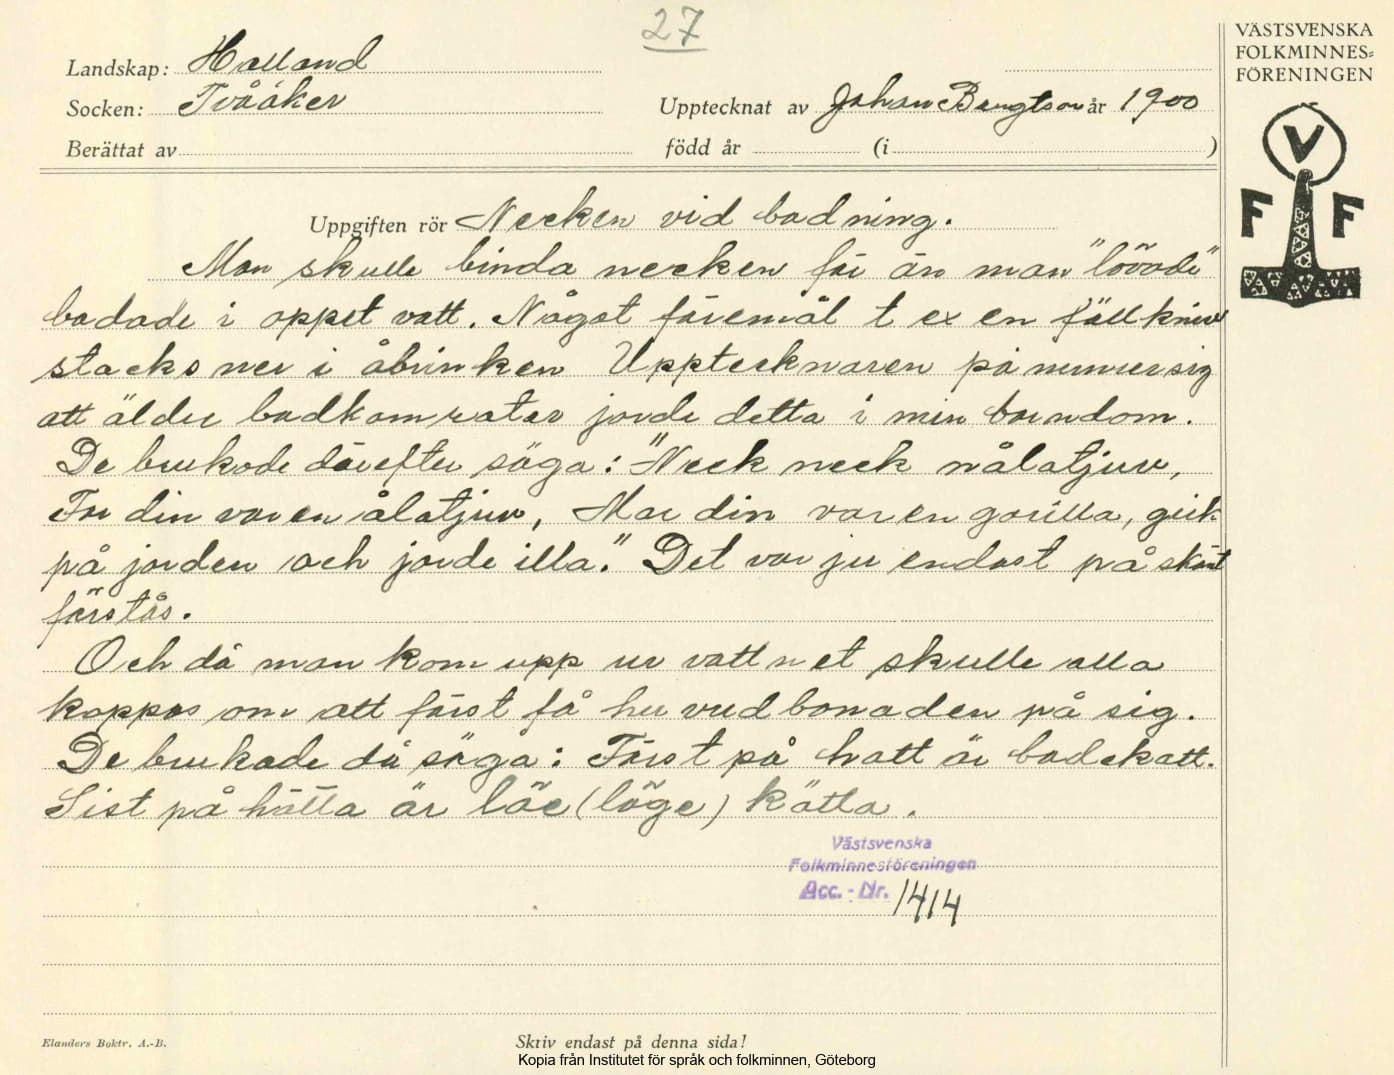 27
VÄSTSVENSKA
FOLKMINNES-
FÖRENINGEN
V
F F
Landskap: Halland
Socken: Tvååker
Upptecknat av Johan Bengtson år 1900
Berättat av
född år (i )
Uppgiften rör Necken vid badning.
Man skulle binda necken för än man "lövade"
badade i öppet vatt. Något föremål t ex en fällkniv
stacks ner i åbrinken Upptecknaren på minner sig
att älder badkamrater jorde detta i min barndom.
De brukade därefter säga: "Neck neck nålatjuv,
Far din var en ålatjuv, Mor din var en gorilla, gick
på jorden och jorde illa." Det var ju endast på skämt
förstås.
Och då man kom upp ur vattnet skulle alla
kappas om att först få huvudbonaden på sig.
De brukade då säga: Först på hatt är badekatt.
Sist på hätta är löe (löge) kätta.
Västsvenska
Folkminnesföreningen
Acc.-Nr. 1414
Elanders Boktr. A.-B.
Skriv endast på denna sida!
Kopia från Institutet för språk och folkminnen, Göteborg